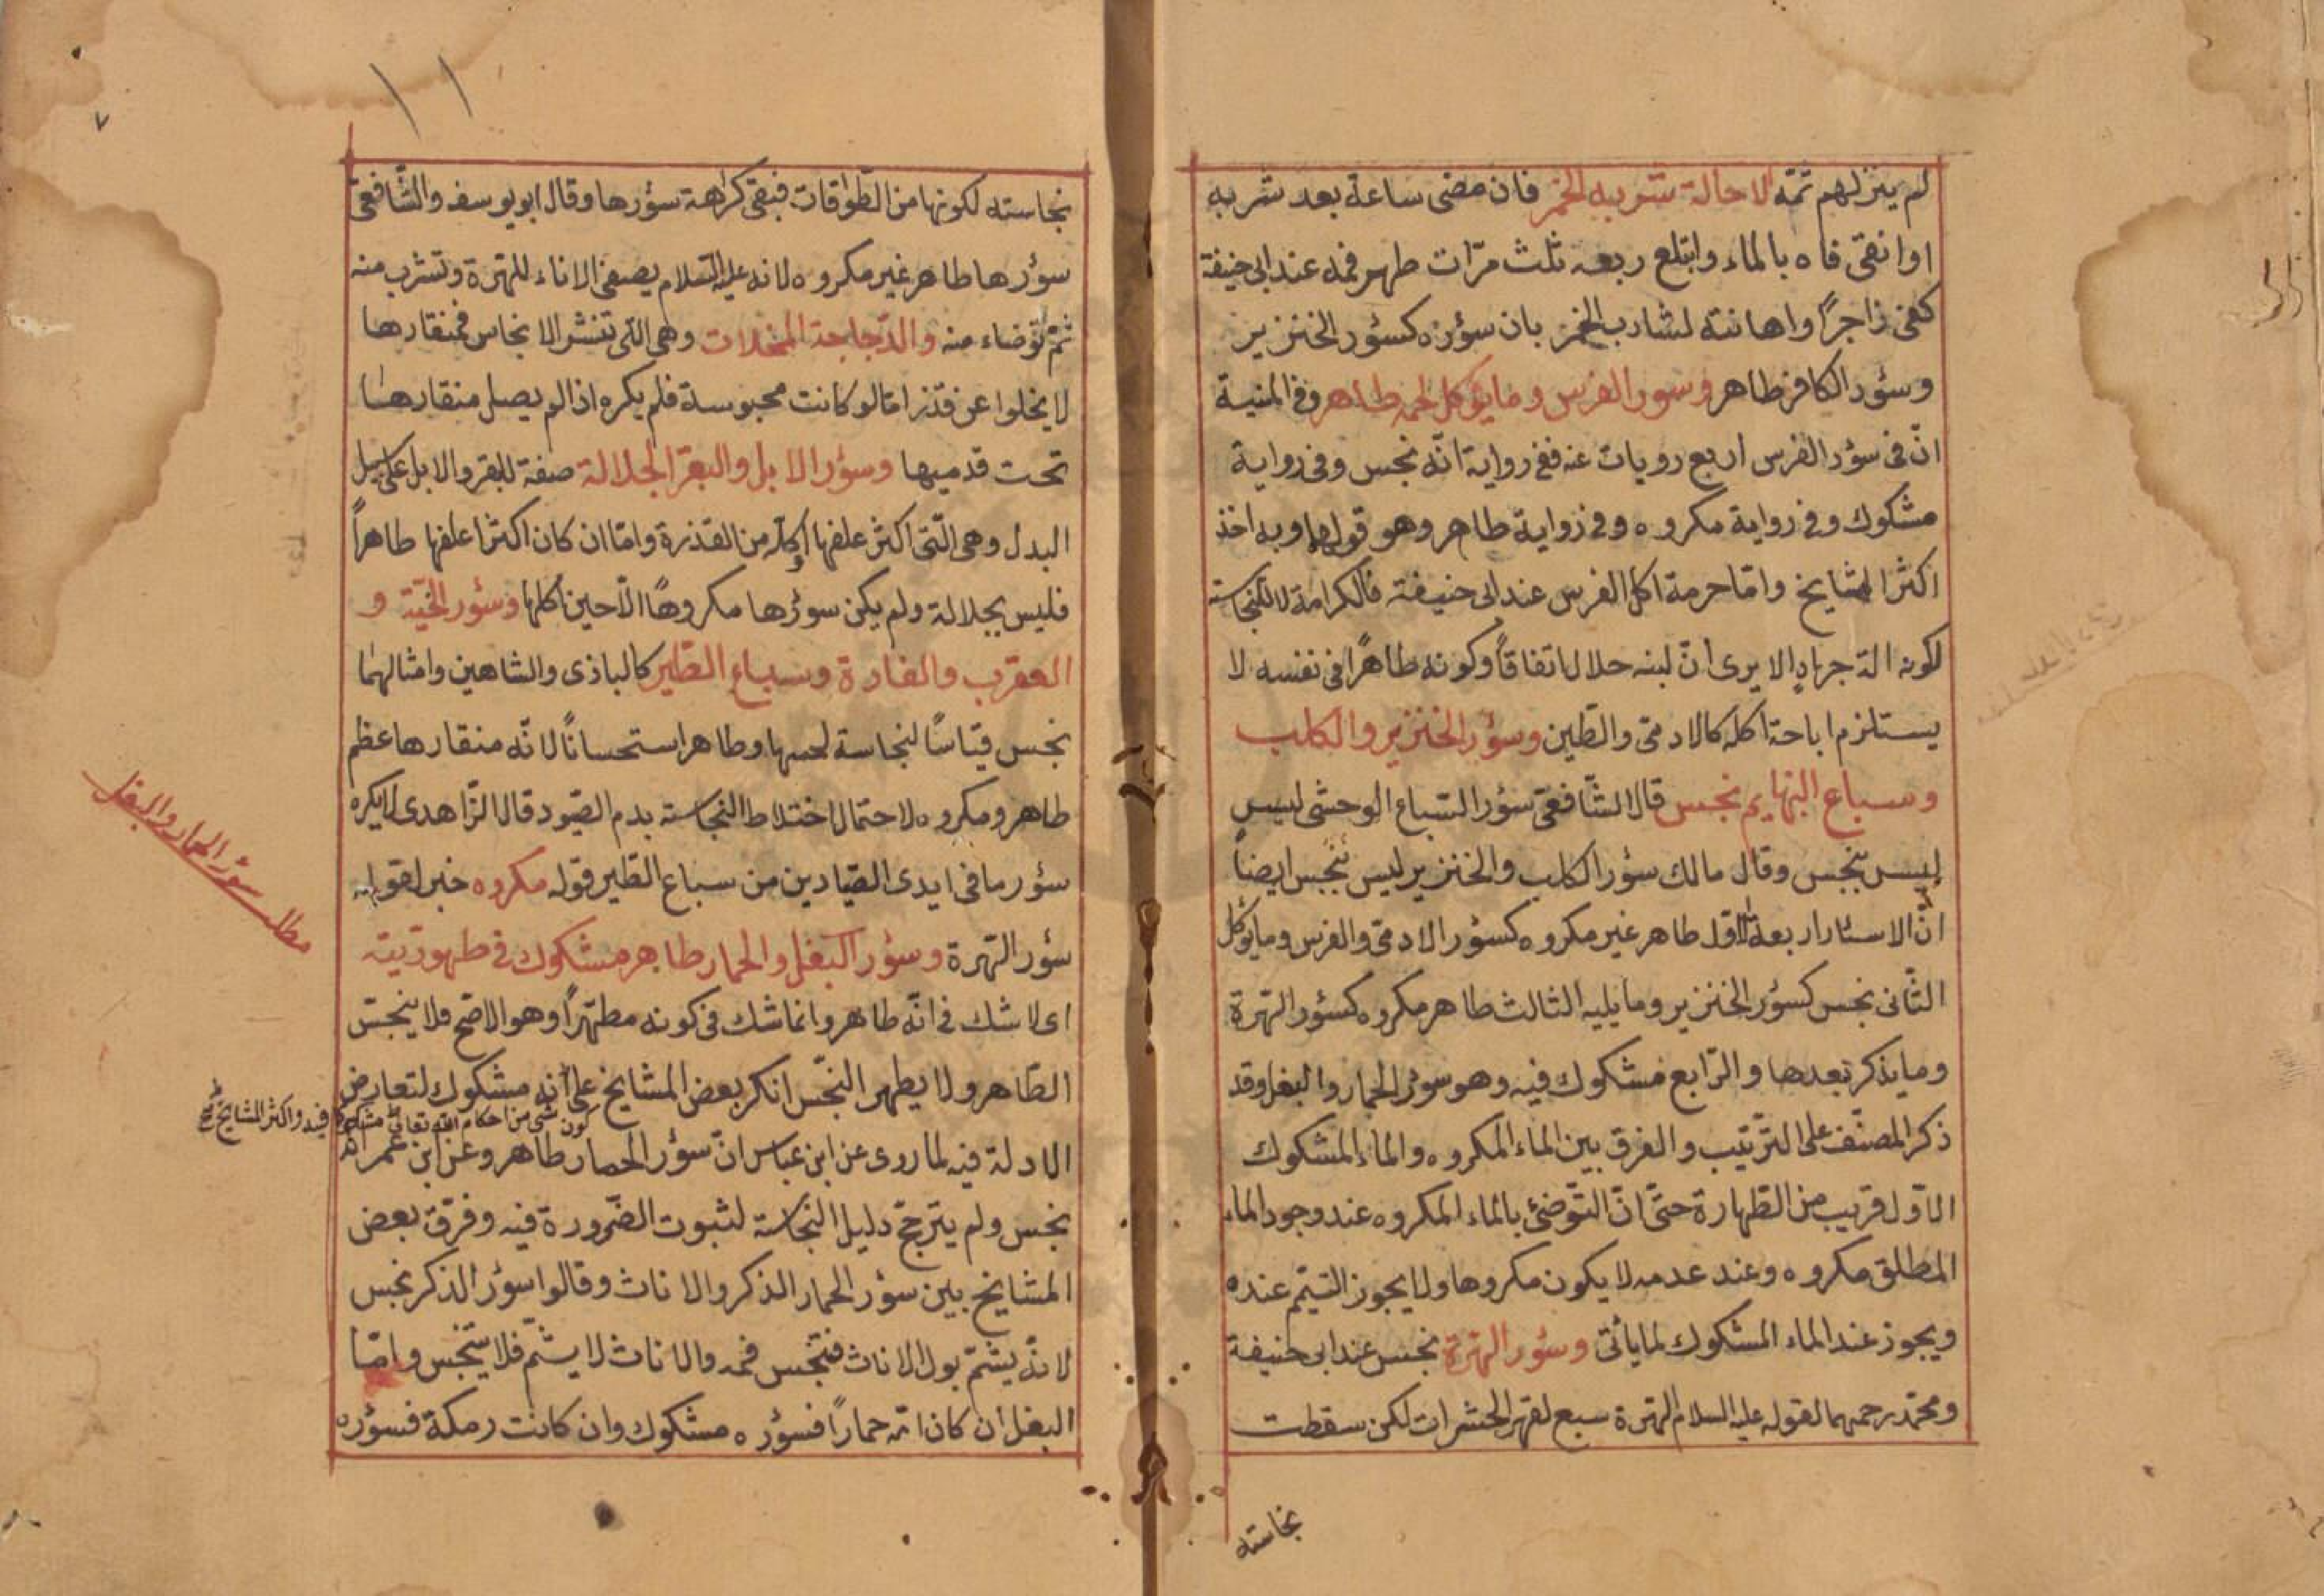 لم ينزلهم ثمّه الا حالة شربه الخمر فان مضى ساعة بعد شربه
او انقى فاه بالماء وابتلع ريعه ثلث مرّات طهر فمه عند ابى حنيفة
كفى زاجراً واهانته لشارب الخمر بان سؤره كسؤر الخنزير
وسؤر الكافر طاهر وسور الفرس وما يؤكل لحمه طاهر وفى المنية
انّ فى سؤر الفرس اربع رويات عنه ففى رواية انّه نجس وفى رواية
مشكوك وفى رواية مكروه وفى رواية طاهر وهو قولهما وبه اخذ
اكثر المشايخ وامّا حرمة اكل الفرس عند ابى حنيفة فالكرامة لا للنجاسة
لكونه الة جهاد الا يرى انّ لبنه حلال اتفاقاً وكونه طاهراً فى نفسه لا
يستلزم اباحة اكله كالادمى والطين وسؤر الخنزير والكلب
وسباع البهايم نجس قال الشّافعى سؤر السّباع الوحشى ليس
ليس بنجس وقال مالك سؤر الكلب والخنزير ليس بنجس ايضاً
انّ الاسئار اربعة الاوّل طاهر غير مكروه كسؤر الادمى والفرس وما يؤكل
الثّانى نجس كسؤر الخنزير وما يليه الثالث طاهر مكروه كسؤر الهرّة
وما يذكر بعدها والرّابع مشكوك فيه وهو سؤر الحمار والبغل وقد
ذكر المصنّف على التّرتيب والفرق بين الماء المكروه والماء المشكوك
الاّول قريب من الطّهارة حتّى انّ التّوضئ بالماء المكروه عند وجود الماء
المطلق مكروه وعند عدمه لا يكون مكروها ولا يجوز التيمّم عنده
ويجوز عند الماء المشكوك لما يأتى وسؤر الهرّة نجس عند ابى حنيفة
ومحمّد رحمهما لقوله عليه السلام الهرّة سبع لقهر الحشرات لكن سقطت
نجاسته
١١
نجاسته لكونها من الطّوافات فبقى كراهة سؤرها وقال ابو يوسف والشّافعى
سؤرها طاهر غير مكروه لانه عليه السّلام يصغى الاناء للهرّة وتشرب منه
ثمّ توّضاء منه والدّجاجة المخلات وهى التى تنشر الانجاس فمنقارها
لا يخلوا عن قذر امّا لو كانت محبوسة فلم يكره اذا لم يصل منقارها
تحت قدميها وسؤر الابل والبقر الجلالة صفة للبقر والابل على سبيل
البدل وهى الّتى اكثر علفها اكله من القذرة وامّا ان كان اكثر علفها طاهراً
فليس بجلالة ولم يكن سؤرها مكروهًا الاّ حين اكلها وسؤر الحيّة و
العقرب والفارة وسباع الطّير كالباذى والشاهين وامثالهما
نجس قيّاسًا لنجاسة لحمها وطاهر استحسانًا لانّه منقارها عظم
طاهر ومكروه لاحتمال اختلاط النجاسة بدم الصّيود قال الزّاهدى لا يكره
سؤر ما فى ايدى الصّيادين من سباع الطّير قوله مكروه خبر لقوله
سؤر الهرّة وسؤر البغل والحمار طاهر مشكوك فى طهوريّته
اى لا شك فى انّه طاهر وانما شك فى كونه مطهّراً وهو الاصّح فلا ينجّس
الطّاهر ولا يطهر النجّس انكر بعض المشايخ على انه مشكوك لتعارض
كون شئ من احكام الله تعالى مشكوكا فيه واكثر المشايخ
الادلة فيه لما روى عن ابن عباس انّ سؤر الحمار طاهر وعن ابن عمر انه
نجس ولم يترجّح دليل النجاسة لثبوت الضّرورة فيه وفرّق بعض
المشايخ بين سؤر الحمار الذكر والاناث وقالوا سؤر الذكر نجس
لانّه يشمّ بول الاناث فتنجّس فمه والاناث لا يشمّ فلا يتنجّس وامّا
البغل ان كان امّه حماراً فسؤره مشكوك وان كانت رمكة فسؤره
مطلب سؤر الحمار والبغل